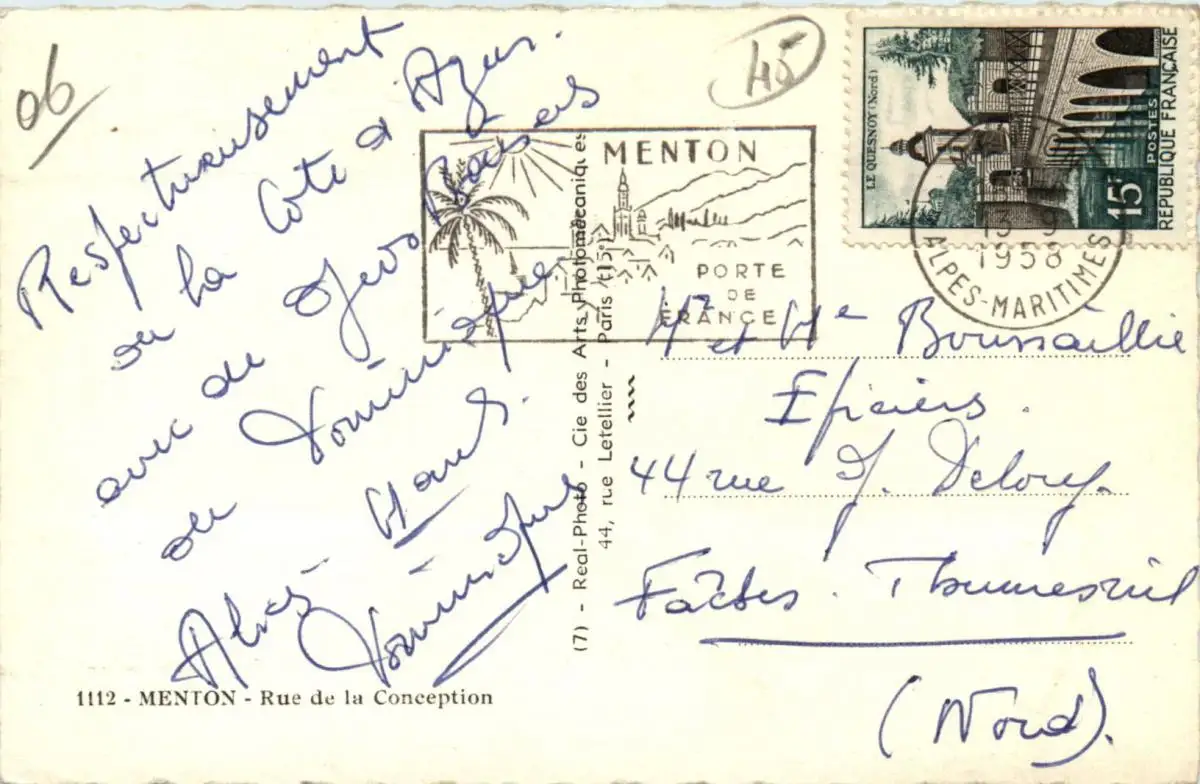 06
45
Respectueusement
de la Côte d'Azur.
avec de Gros Baisers
de Dominique
Dominique
MENTON
PORTE
DE
FRANCE
LE QUESNOY (Nord)
15F
POSTES
RÉPUBLIQUE FRANÇAISE
1958
ALPES-MARITIMES
(7) - Real-Photo - Cie des Arts Photomécaniques
44, rue Letellier - Paris (15e)
Mr et Me Boussaillie
Epiciers.
44 rue J. Delory.
Faches. Thumesnil
(Nord).
1112 - MENTON - Rue de la Conception